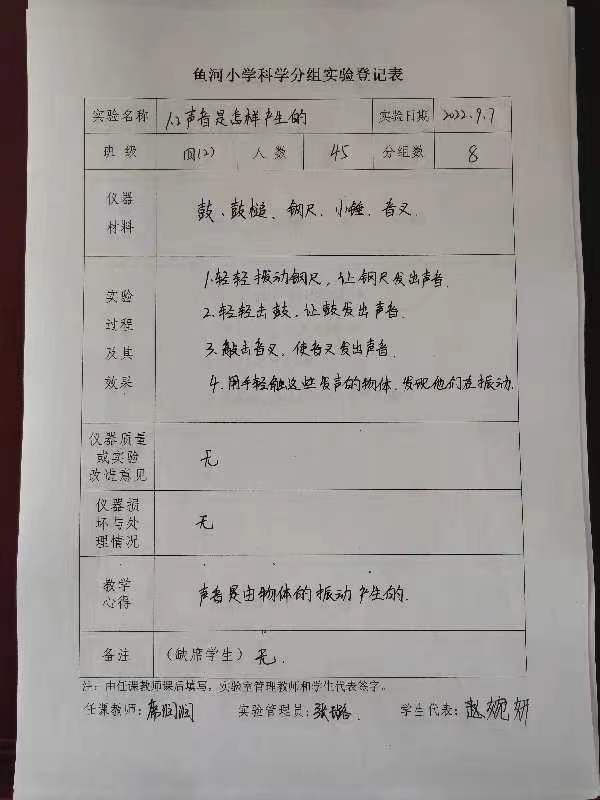 鱼河小学科学分组实验登记表
实验名称 1.2声音是怎样产生的 实验日期 2022.9.7
班 级 四(2) 人 数 45 分组数 8
仪器
材料
鼓、鼓槌、钢尺、小锤、音叉.
实验
过程
及其
效果
1.轻轻拨动钢尺，让钢尺发出声音.
2.轻轻击鼓，让鼓发出声音.
3.敲击音叉，使音叉发出声音.
4.用手轻触这些发声的物体，发现他们在振动.
仪器质量
或实验
改进意见
无
仪器损
坏与处
理情况
无
教学
心得
声音是由物体的振动产生的.
备注 （缺席学生）无.
注：由任课教师课后填写，实验室管理教师和学生代表签字。
任课教师：席润润 实验管理员： 学生代表：赵婉妍